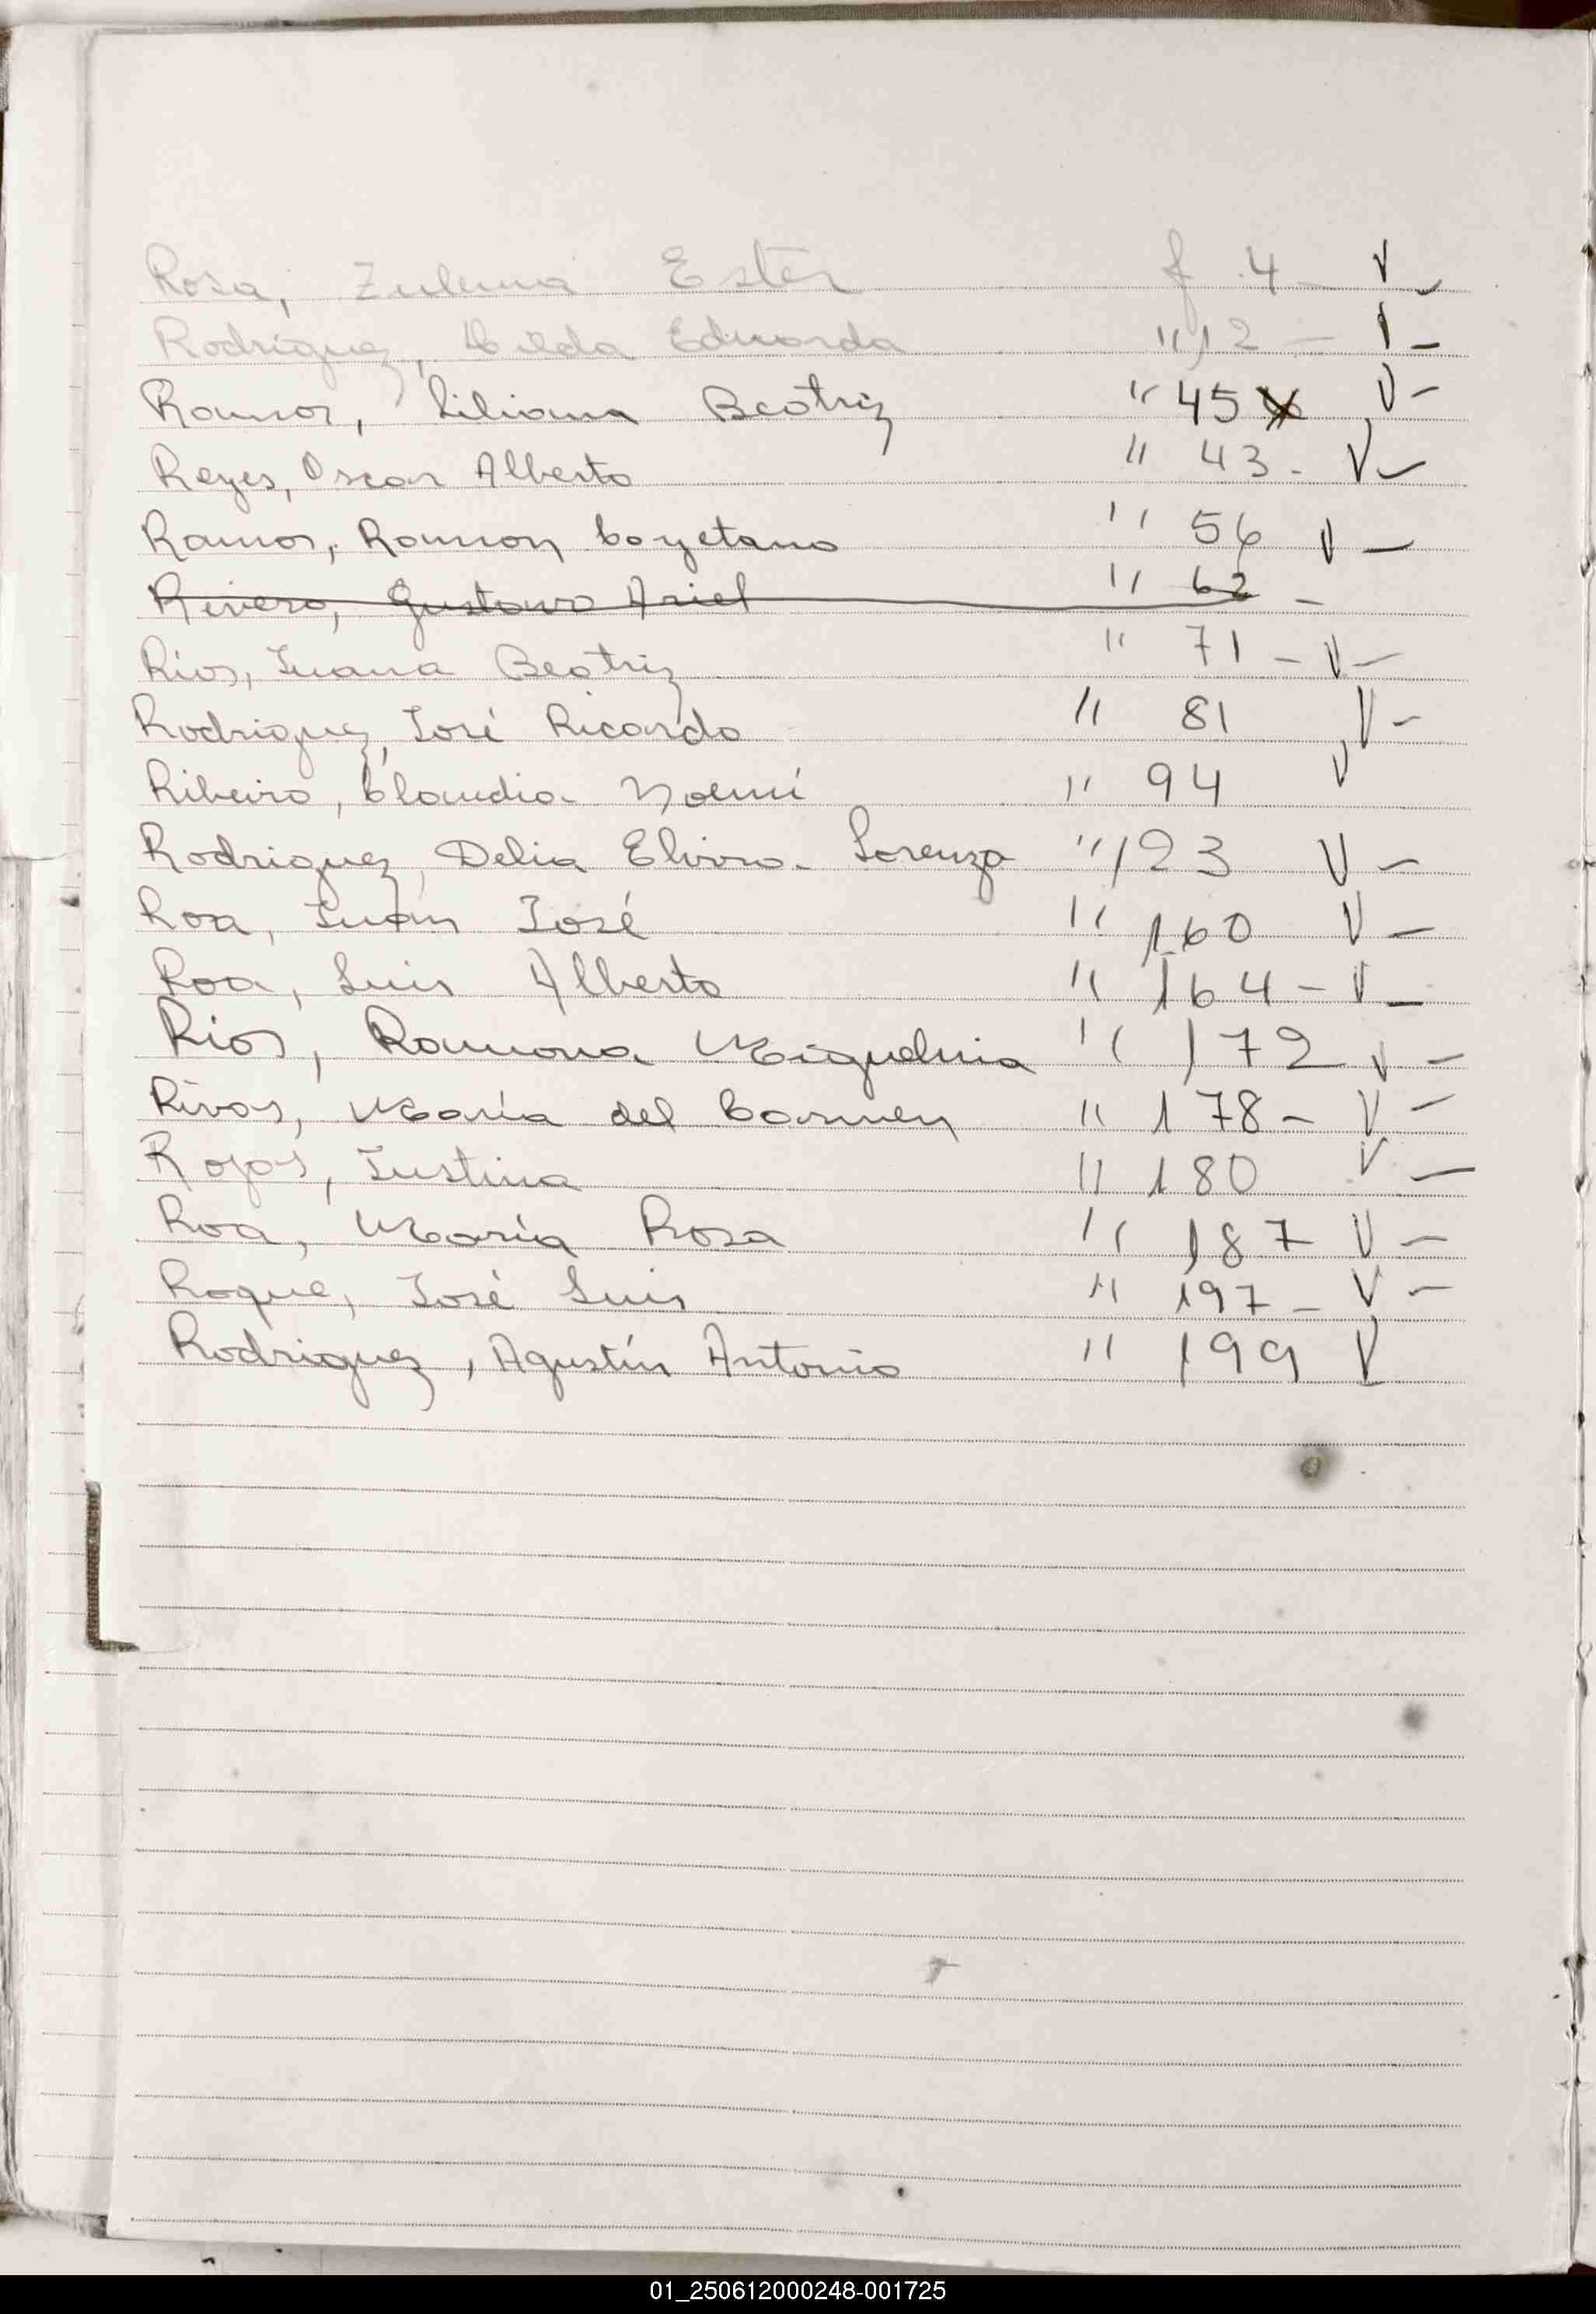 Rosa, Zulema Ester f 4 - V -
Rodríguez, Hilda Eduarda " 12 - V -
Ramos, Liliana Beatriz " 45 V -
Reyes, Oscar Alberto " 43 - V -
Ramos, Ramon Cayetano " 56 V -
Rivero, Gustavo Ariel " 62 -
Rios, Juana Beatriz " 71 - V -
Rodriguez, José Ricardo " 81 V -
Ribeiro, Claudia Noemí " 94 V
Rodriguez, Delia Elvira Lorenza " 123 V -
Roa, Juan José " 160 V -
Roa, Luis Alberto " 164 - V -
Rios, Ramona Miguelina " 172 V -
Rivas, María del Carmen " 178 - V -
Rojas, Justina " 180 V -
Roa, María Rosa " 187 V -
Roque, José Luis " 197 - V -
Rodriguez, Agustín Antonio " 199 V
01_250612000248-001725